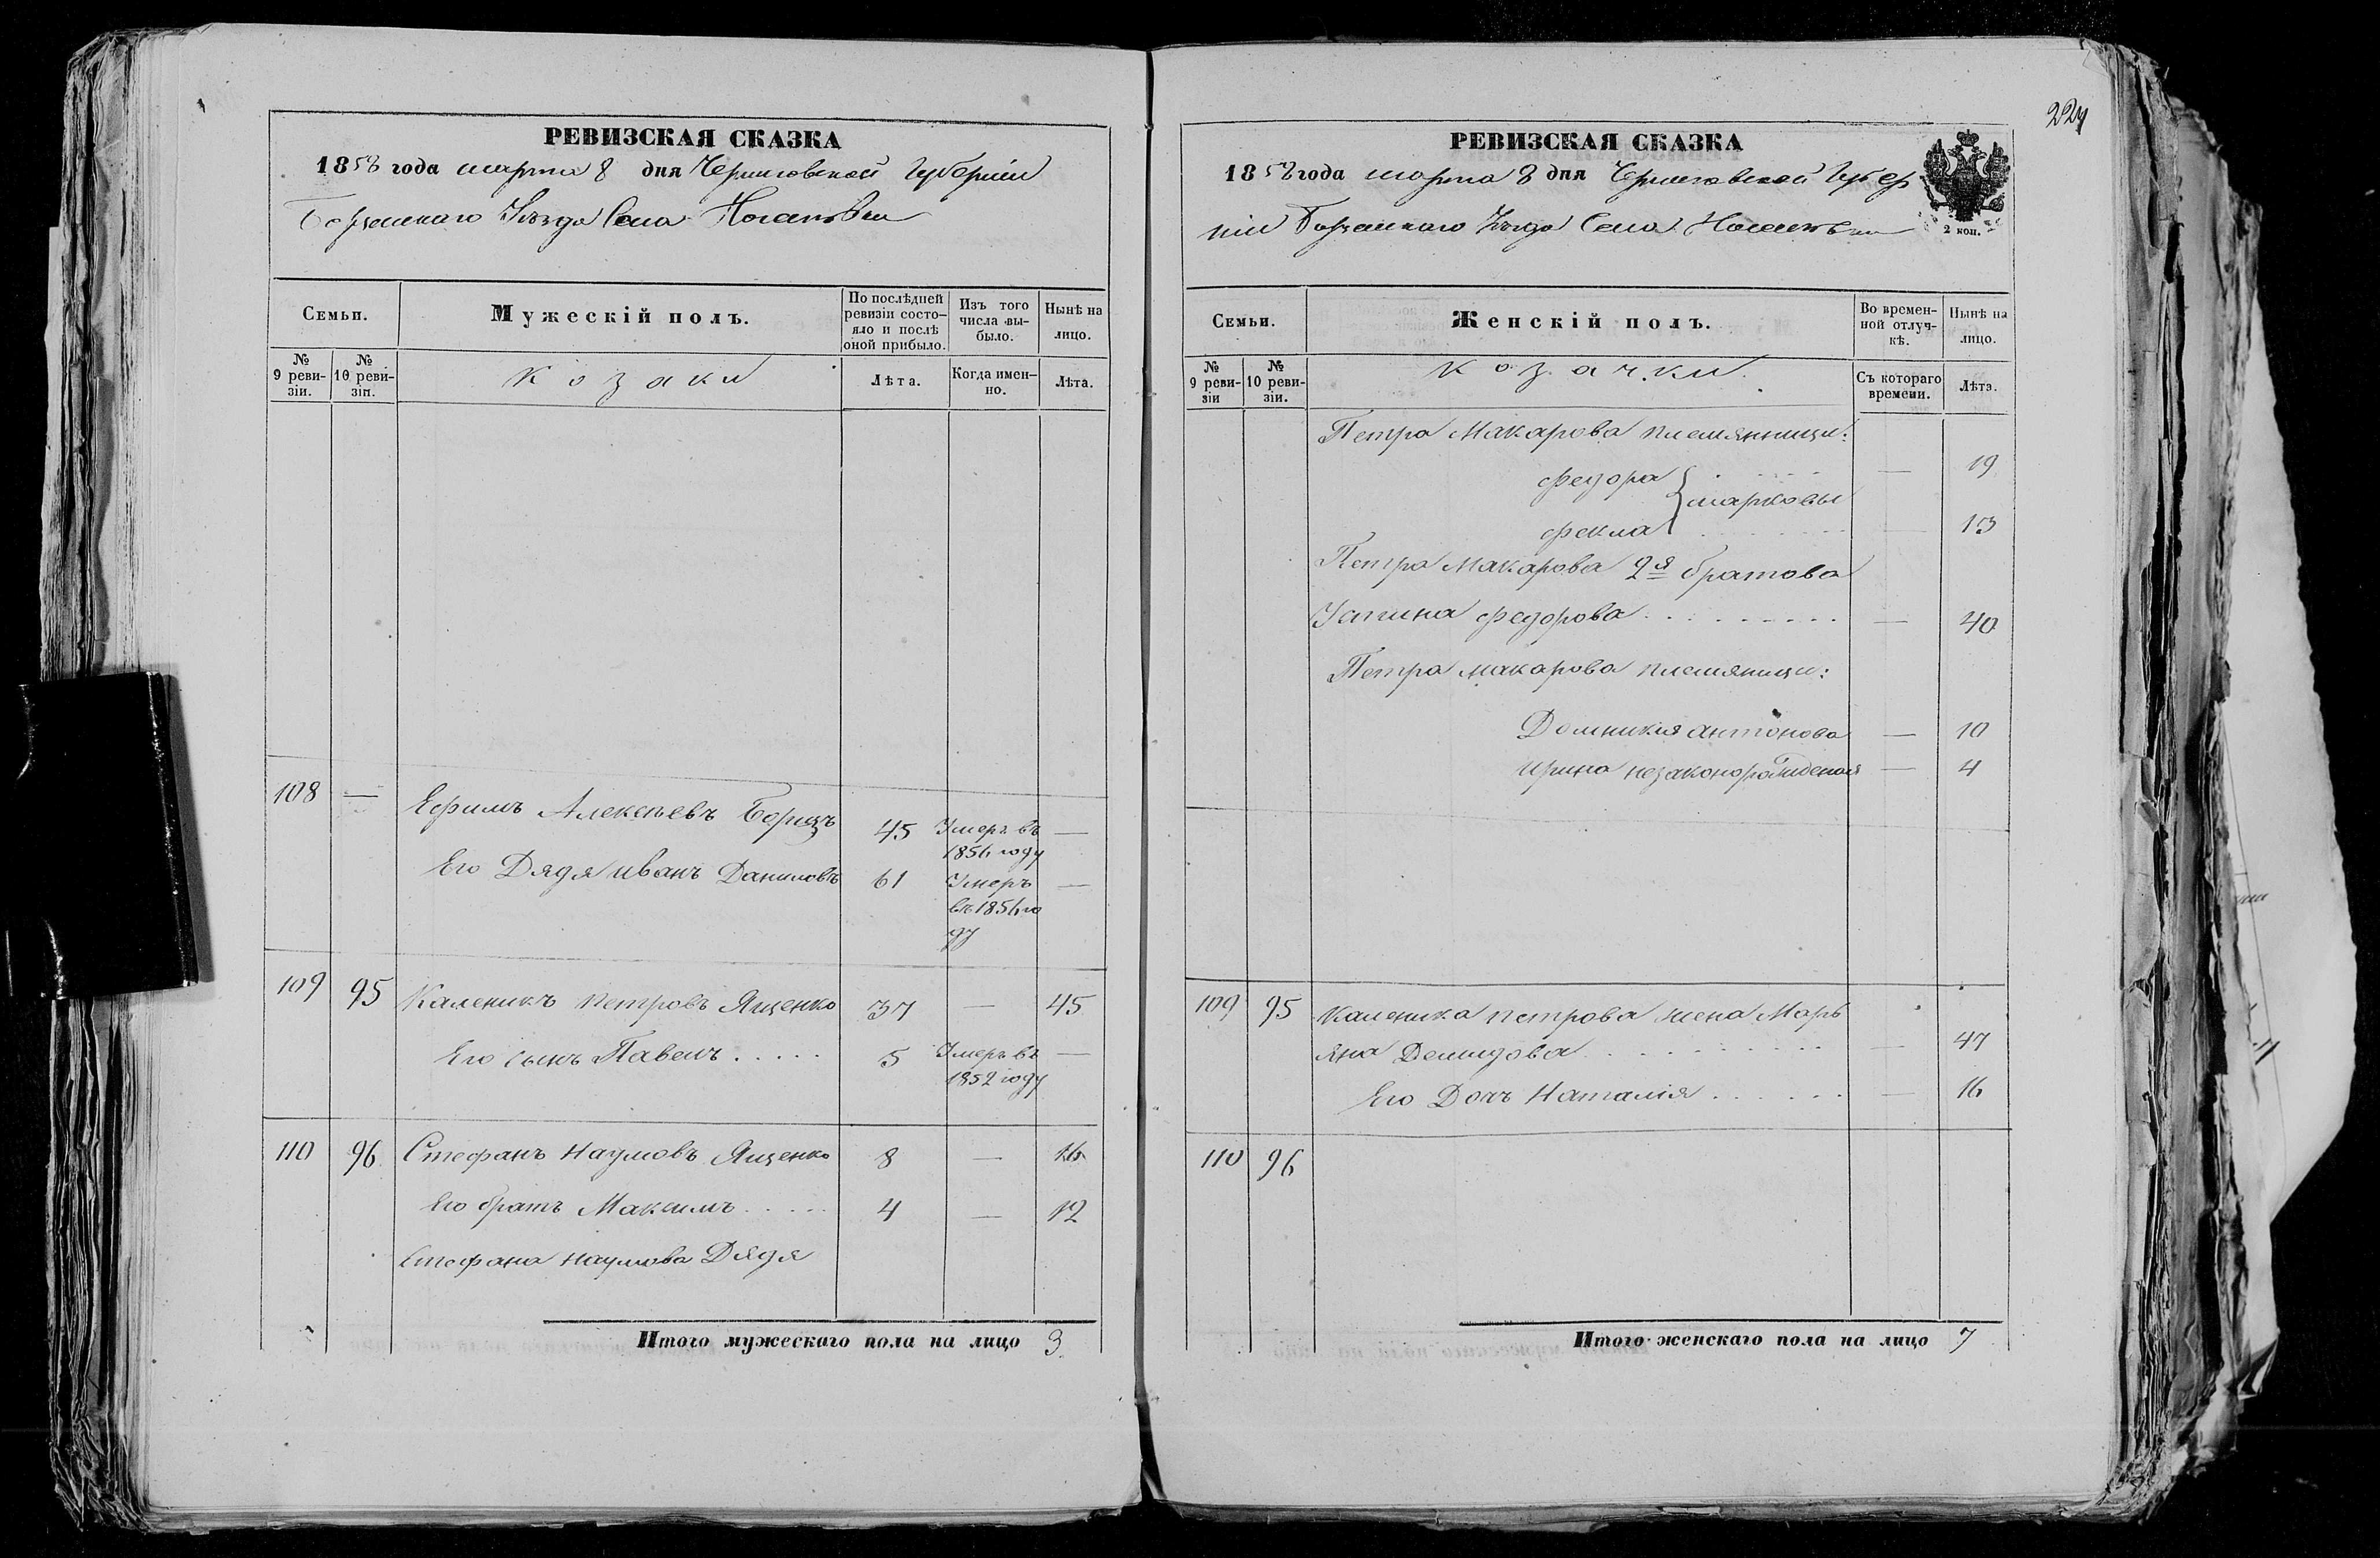 РЕВИЗСКАЯ СКАЗКА
1858 года марта 8 дня Черниговской Губерніи
Борзенскаго Уѣзда Села
Семьи.
Мужескій полъ.
По послѣдней ревизіи состояло и послѣ оной прибыло.
Изъ того числа выбыло.
Нынѣ на лицо.
№ 9 ревизіи.
№ 10 ревизіи.
Козаки
Лѣта.
Когда именно.
Лѣта.
108 — Ефимъ Алексѣевъ 45 Умеръ въ —
1856 году
Его Дядя Иванъ Даниловъ 61 Умеръ —
въ 1856 го
ду
109 95 Каленикъ Петровъ Ященко 37 — 45
Его сынъ Павелъ . . . . . 5 Умеръ въ —
1852 году
110 96 Стефанъ Наумовъ Ященко 8 — 16
Его братъ Максимъ . . . . . 4 — 12
Стефана Наумова Дядя
Итого мужескаго пола на лицо 3
224
РЕВИЗСКАЯ СКАЗКА
1858 года марта 8 дня Черниговской Губер
ніи Борзенскаго Уѣзда Села
2 коп.
Семьи.
Женскій полъ.
Во временной отлучкѣ.
Нынѣ на лицо.
№ 9 ревизіи
№ 10 ревизіи.
Козачки
Съ котораго времени.
Лѣта.
Петра Макарова племянницы:
Федора . . . . — 19
Марковы
Фекла . . . . — 13
Петра Макарова 2я братова
Устина Федорова . . . . . . . . — 40
Петра Макарова племяницы:
Домникія Антонова — 10
Ирина незаконорожденая — 4
109 95 Каленика Петрова жена Марь
яна Демидова . . . . . . . . — 47
Его Дочь Наталія . . . . . . — 16
110 96
Итого женскаго пола на лицо 7